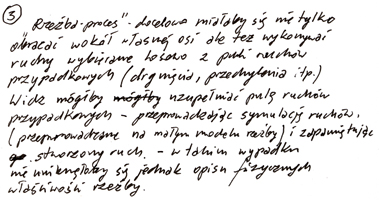 ③ "Rzeźba-proces" - docelowo miałaby się nie tylko
obracać wokół własnej osi ale też wykonywać
ruchy wybierane losowo z puli ruchów
przypadkowych (drgnięcia, przechylenia itp.)
Widz mógłby mógłby uzupełniać pulę ruchów
przypadkowych - przeprowadzając symulację ruchów,
(przeprowadzane na małym modelu rzeźby) i zapamiętując
stworzony ruch. - w takim wypadku
nie uniknęłoby się jednak opisu fizycznych
właściwości rzeźby.